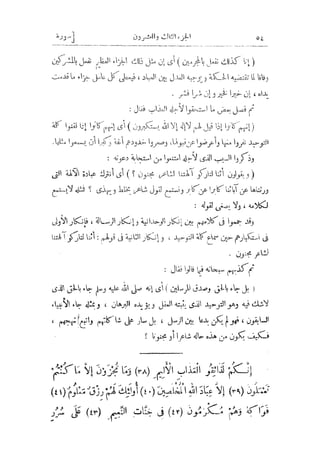 ٥٤ الجزء الثالث والعشرون [ – سورة
( إنا كذلك نفعل بالمجرمين ) أى إن مثل ذلك الجزاء العظيم نفعل بالمشركين
وفاقا لما تقتضيه الحكمة ويوجبه العدل بين العباد ، فيعطى كل عامل جزاء ما قدمت
يداه ، إن خيرا فخير وإن شرا فشر .
ثم فصل بعض ما استحقوا لأجله العذاب فقال :
( إنهم كانوا إذا قيل لهم لا إله إلا الله يستكبرون ) أى إنهم كانوا إذا لقنوا كلمة
التوحيد نفروا منها وأعرضوا عن قبولها، وصعروا خدودهم أنفة وكبرا أن يسمعوا مثلها.
وذكروا السبب الذى لأجله امتنعوا من استجابة دعوته :
( ويقولون أئنا لتاركو آلهتنا لشاعر مجنون ؟ ) أى أنترك عبادة الآلهة التى
ورثناها عن آبائنا كابرا عن كابر ونستمع لقول شاعر يخلط ويهذى ؟ فمثله لا يستمع
لكلامه ، ولا يصغى لقوله :
وقد جمعوا فى كلامهم بين إنكار الوحدانية وإنكار الرسالة ، فإنكار الأولى
فى استكبارهم حين سماع كلمة التوحيد ، وإنكار الثانية فى قولهم : أئنا لتاركو آلهتنا
لشاعر مجنون .
ثم كذبهم سبحانه فيما قالوا فقال :
( بل جاء بالحق وصدق المرسلين ) أى إنه صلى الله عليه وسلم جاء بالحق الذى
لاشك فيه وهو التوحيد الذى يثبته العقل ويؤيده البرهان ، وبمثله جاء الأنبياء
السابقون ، فهو لم يكن بدعا بين الرسل ، بل سار على شاكلتهم واتبع نهجهم ،
فكيف يكون من هذه حاله شاعرا أو مجنونا ؟
إِنَّكُمْ لَذَائِقُو الْعَذَابِ الْأَلِيمِ (٣٨) وَمَا تُجْزَوْنَ إِلَّا مَا كُنْتُمْ
تَعْمَلُونَ (٣٩) إِلَّا عِبَادَ اللهِ الْمُخْلَصِينَ (٤٠) أُولَئِكَ لَهُمْ رِزْقٌ مَعْلُومٌ (٤١)
فَوَاكِهُ وَهُمْ مُكْرَمُونَ (٤٢) فِي جَنَّاتِ النَّعِيمِ (٤٣) عَلَى سُرُرٍ